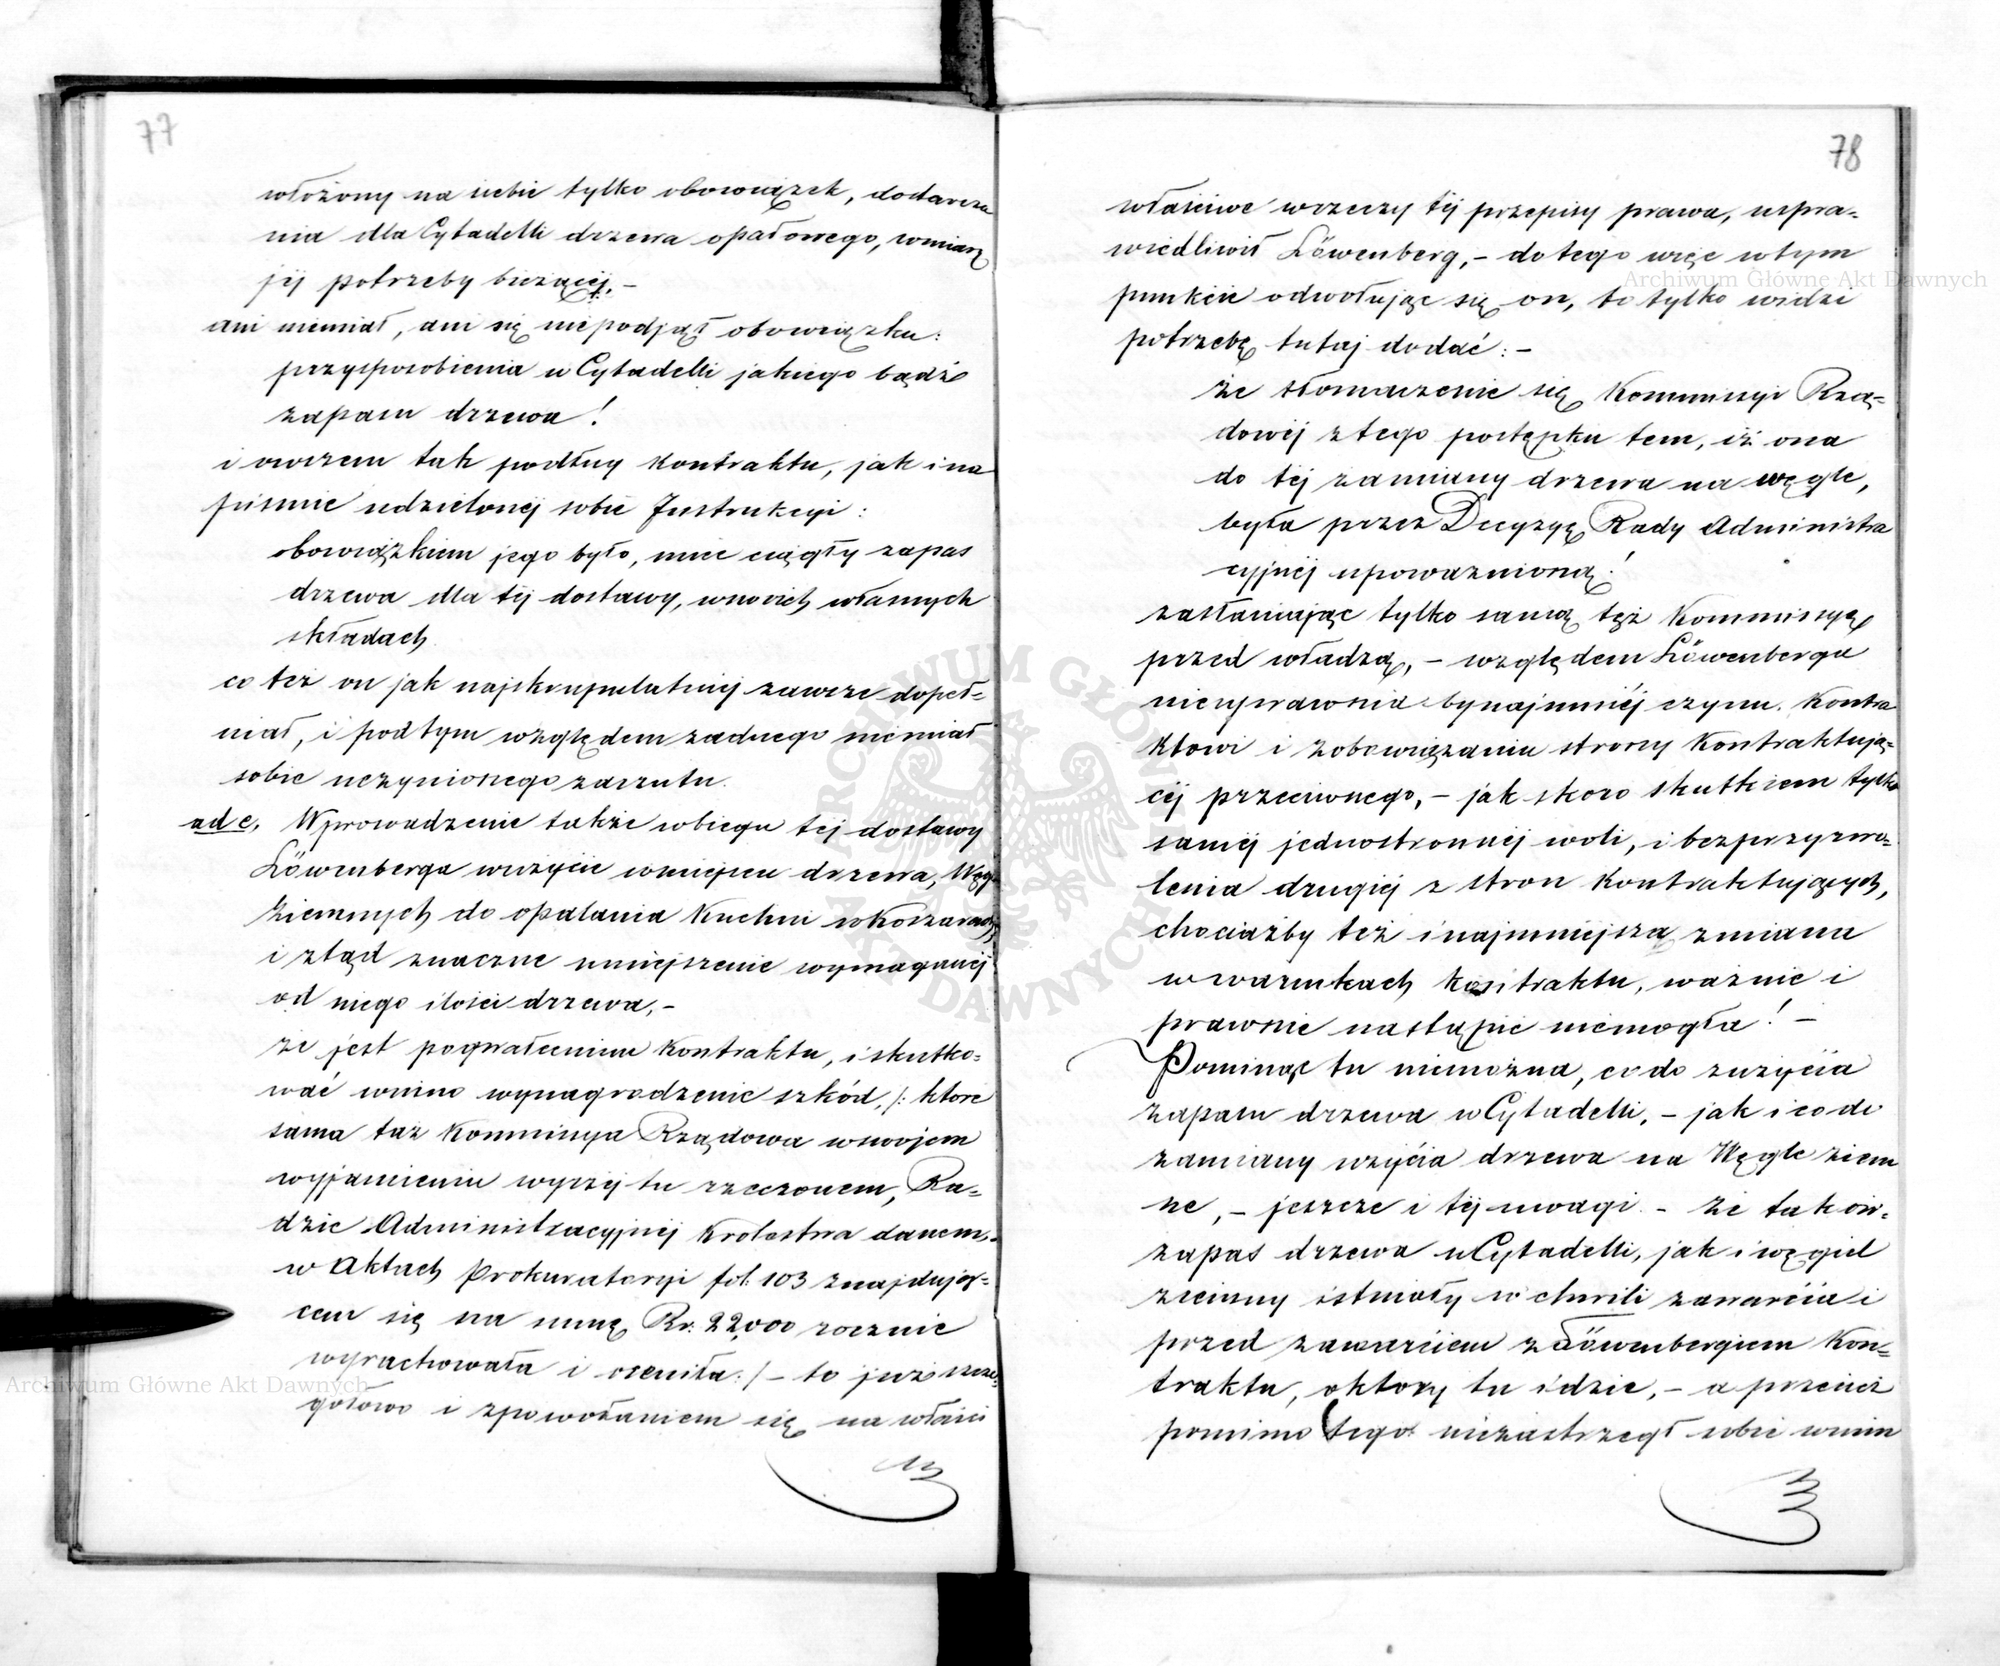 77
włożony na siebie tylko obowiązek, dostarcza
nia dla Cytadelli drzewa opałowego, wmiarę
jéj potrzeby bieżącéj.–
ani niemiał, ani się niepodjął obowiązku:
przysposobienia w Cytadelli jakiego bądź
zapasu drzewa!
i owszem tak podług Kontraktu, jak i na
piśmie udzielonéj sobie Instrukcyi:
obowiązkiem jego było, mieć ciągły zapas
drzewa dla téj dostawy, wswoich własnych
składach.
co też on jak najskrupulatniéj zawsze dopeł=
niał, i podtym względem żadnego niemiał
sobie uczynionego zarzutu.
ad c. Wprowadzenie także wbiegu téj dostawy
Löwenberga wużycie wmiejscu drzewa, Węgli
Ziemnych do opalania Kuchni wKoszarach
i ztąd znaczne umniejszenie wymaganéj
od niego ilości drzewa,–
że jest pogwałceniem Kontraktu, i skutko=
wać winno wynagrodzenie szkód, /: które
sama taż Kommissya Rządowa wswojem
wyjaśnieniu wyżéj tu rzeczonem, Ra=
dzie Administracyjnéj Królestwa danem,
w Aktach Prokuratoryi fol. 103 znajdują=
cem się na summę Rs. 22,000 rocznie
wyrachowała i oceniła :/ – to już szcze=
gółowo i zpowołaniem się na właści
78
właściwe wrzeczy téj przepisy prawa, uspra=
wiedliwił Löwenberg,– do tego więc wtym
punkcie odwołując się on, to tylko widzi
potrzebę tutaj dodać:–
że tłomaczenie się Kommissyi Rzą=
dowéj ztego postępku tem, iż ona
do téj zamiany drzewa na węgle,
była przez Decyzyę Rady Administra
cyjnéj upoważnioną!
zasłaniając tylko samą tęż Kommissyę
przed władzą,– względem Löwenberga
nieusprawnia bynajmniéj czynu. Kontra
ktowi i zobowiązaniu strony Kontraktują=
céj przeciwnego,– jak skoro skutkiem tylko
saméj jednostronnéj woli, i bezprzyzwo=
lenia drugiéj z stron Kontraktujących,
chociażby też i najmniejsza zmiana
w warunkach Kontraktu, ważnie i
prawnie nastąpić niemogła!–
Pominąć tu niemożna, codo zużycia
zapasu drzewa wCytadelli,– jak i co do
zamiany użycia drzewa na Węgle ziem
ne,– jeszcze i téj uwagi – że takowy
zapas drzewa wCytadelli, jak i węgiel
ziemny istniały w chwili zawarcia i
przed zawarciem zLöwenbergiem Kon=
traktu, októry tu idzie,– a przecież
pomimo tego niezastrzegł sobie wnim